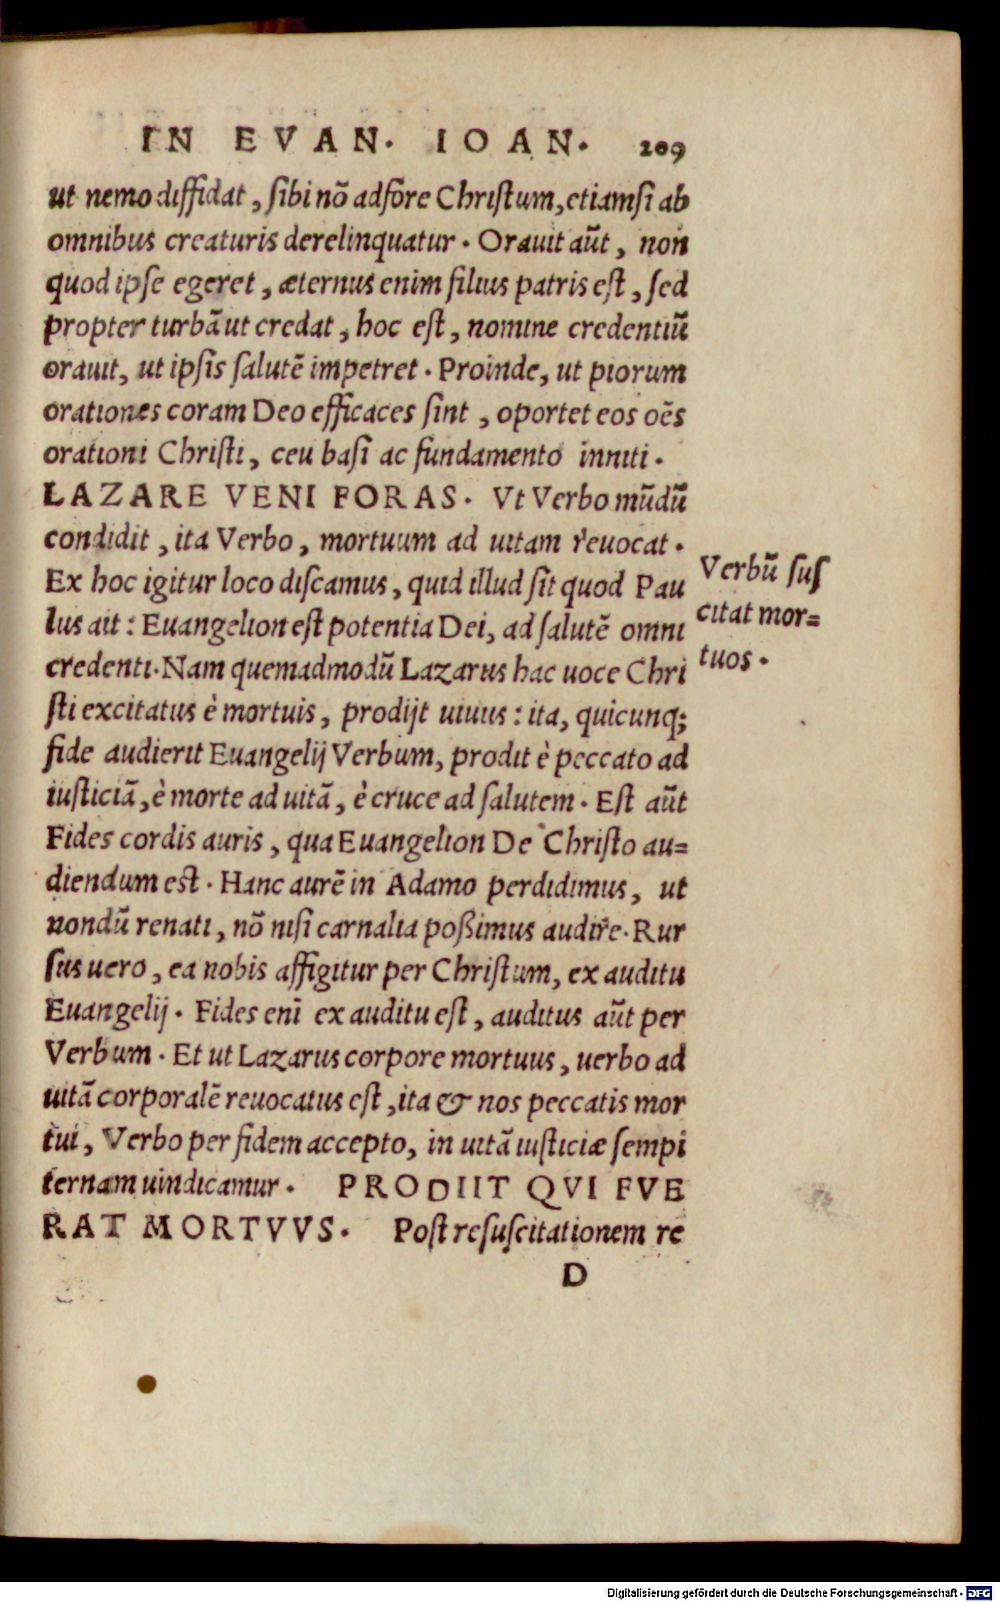 IN EVAN. IOAN. 209
ut nemo diffidat, sibi nō adfore Christum, etiamsi ab
omnibus creaturis derelinquatur. Orauit aūt, non
quod ipse egeret, æternus enim filius patris est, sed
propter turbā ut credat, hoc est, nomine credentiū
orauit, ut ipsis salutē impetret. Proinde, ut piorum
orationes coram Deo efficaces sint, oportet eos oēs
orationi Christi, ceu basi ac fundamento inniti.
LAZARE VENI FORAS. Vt Verbo mūdū
condidit, ita Verbo, mortuum ad uitam reuocat.
Ex hoc igitur loco discamus, quid illud sit quod Pau
lus ait: Euangelion est potentia Dei, ad salutē omni
credenti. Nam quemadmodū Lazarus hac uoce Chri
sti excitatus è mortuis, prodijt uiuus: ita, quicunq;
fide audierit Euangelij Verbum, prodit è peccato ad
iusticiā, è morte ad uitā, è cruce ad salutem. Est aūt
Fides cordis auris, qua Euangelion De Christo au=
diendum est. Hanc aurē in Adamo perdidimus, ut
nondū renati, nō nisi carnalia poßimus audire. Rur
sus uero, ea nobis affigitur per Christum, ex auditu
Euangelij. Fides enī ex auditu est, auditus aūt per
Verbum. Et ut Lazarus corpore mortuus, uerbo ad
uitā corporalē reuocatus est, ita & nos peccatis mor
tui, Verbo per fidem accepto, in uitā iusticiæ sempi
ternam uindicamur. PRODIIT QVI FVE
RAT MORTVVS. Post resuscitationem re
D
Verbū sus
citat mor=
tuos.
Digitalisierung gefördert durch die Deutsche Forschungsgemeinschaft - DFG